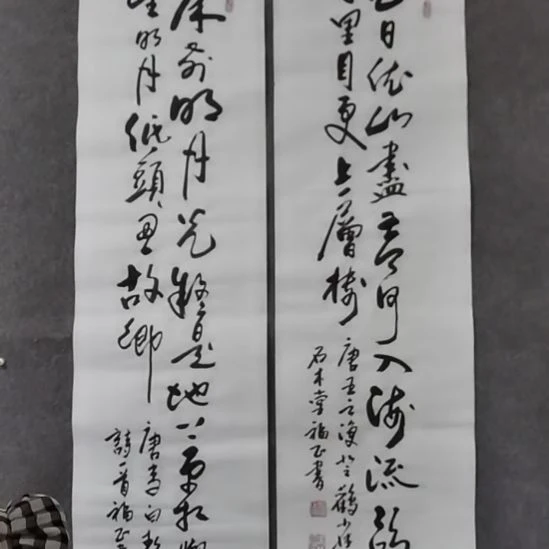 白日依山盡黄河入海流欲
里目更上層樓
唐王之渙登鸛雀
石木堂福正書
床前明月光疑是地上霜
望明月低頭思故鄉
唐李白靜
詩一首福正